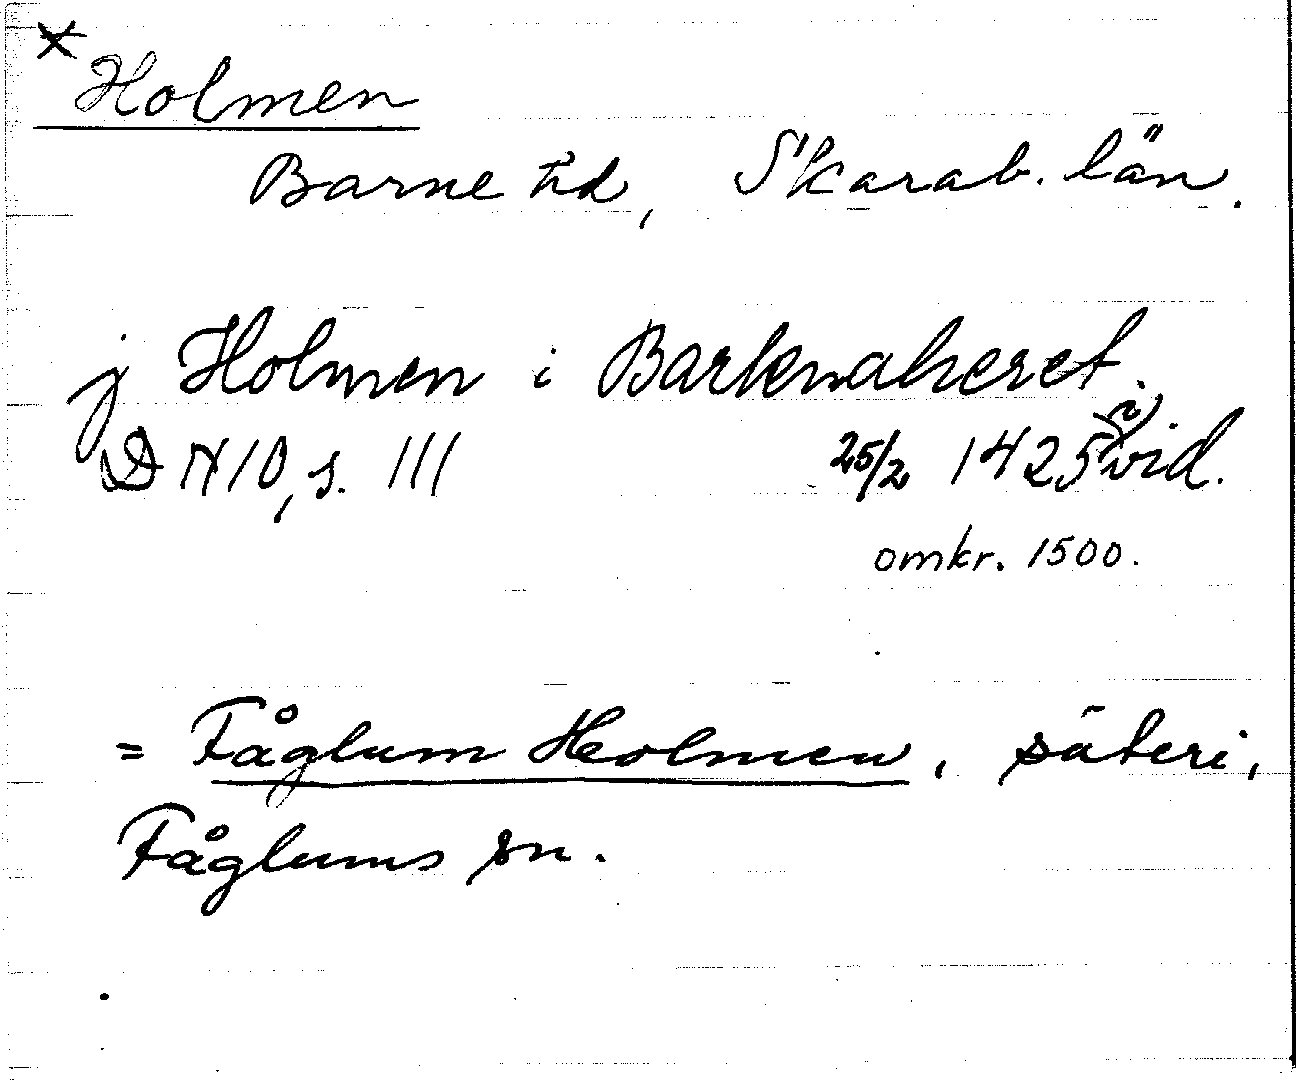 × Holmen
Barne hd, Skarab. län.
j Holmen i Barknaheret.
D N 10, s. 111 25/2 1425 vid.
omkr. 1500.
= Fåglum Holmen, säteri,
Fåglums sn.